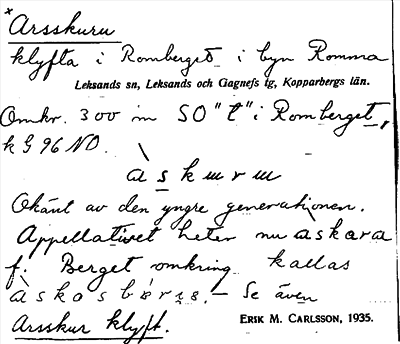 × Arsskuru
klyfta i Romberget i byn Romma
Leksands sn, Leksands och Gagnefs tg, Kopparbergs län.
Omkr. 300 m SO "t" i Romberget,
k G 96 NO.
askuru
Okänt av den yngre generationen.
Appellativet heter nu askara
f. Berget omkring kallas
– Se även
Arsskur klyft.
ERIK M. CARLSSON, 1935.